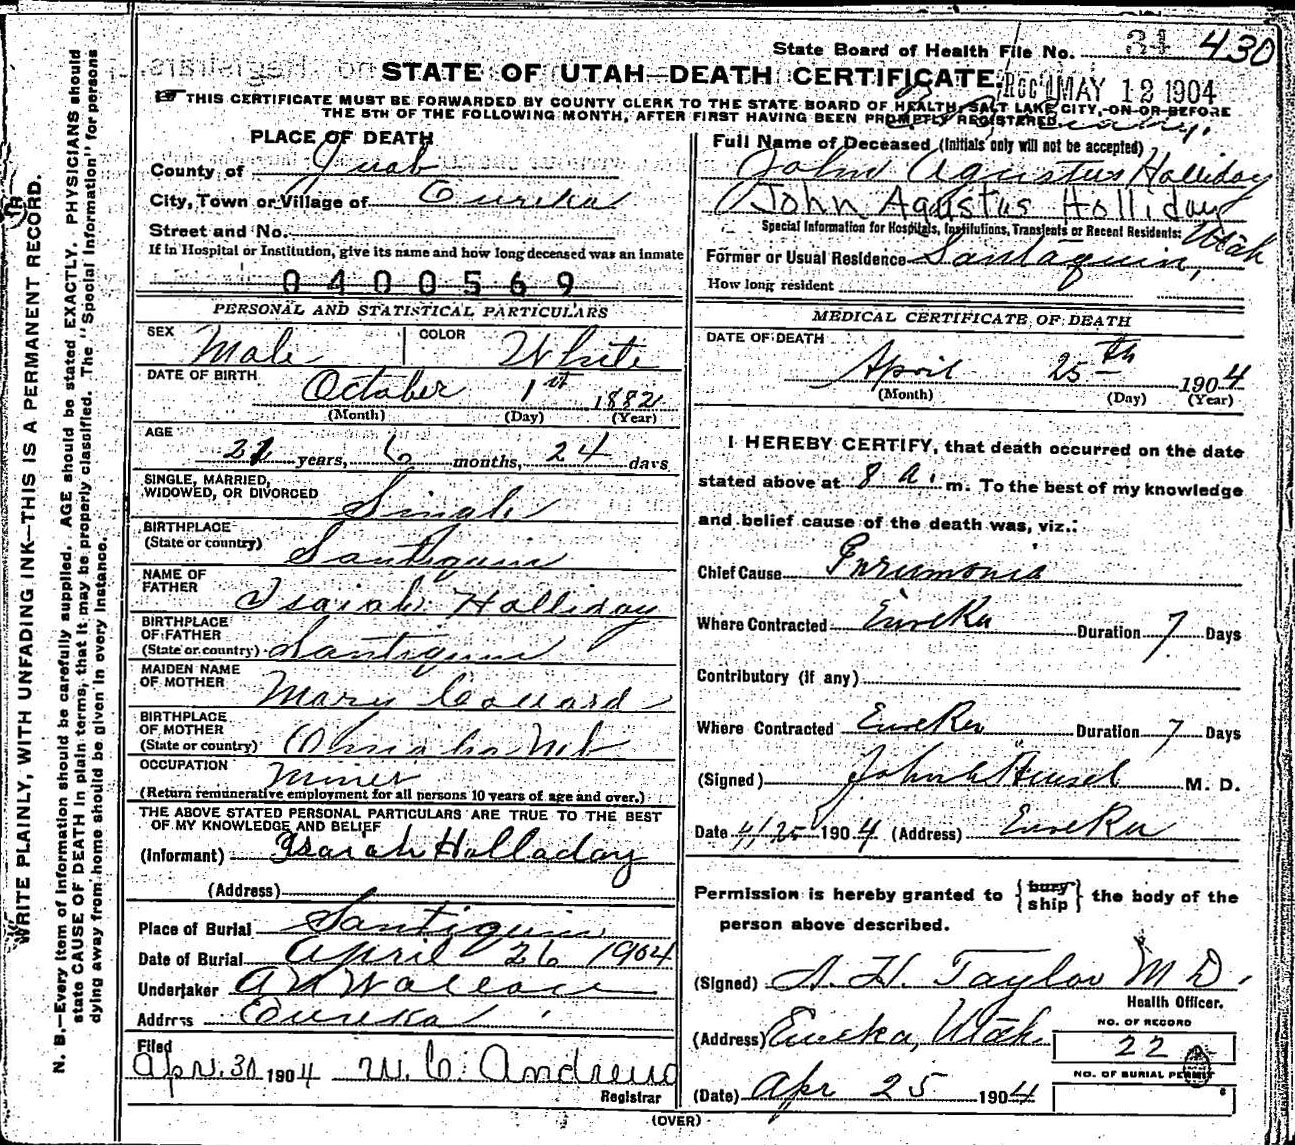 State Board of Health File No. 430
STATE OF UTAH—DEATH CERTIFICATE
Rec'd MAY 12 1904
THIS CERTIFICATE MUST BE FORWARDED BY COUNTY CLERK TO THE STATE BOARD OF HEALTH, SALT LAKE CITY, ON OR BEFORE
THE 5TH OF THE FOLLOWING MONTH, AFTER FIRST HAVING BEEN PROMPTLY REGISTERED
PLACE OF DEATH
County of Juab
City, Town or Village of Eureka
Street and No.
If in Hospital or Institution, give its name and how long deceased was an inmate
0400569
Full Name of Deceased (Initials only will not be accepted)
John Agustus Holliday
John Agustus Holliday
Special Information for Hospitals, Institutions, Transients or Recent Residents:
Former or Usual Residence Santaquin, Utah
How long resident
PERSONAL AND STATISTICAL PARTICULARS
SEX Male COLOR White
DATE OF BIRTH October 1st 1882
(Month) (Day) (Year)
AGE 21 years, 6 months, 24 days
SINGLE, MARRIED,
WIDOWED, OR DIVORCED Single
BIRTHPLACE
(State or country) Santiquin
NAME OF
FATHER Isaiah Holliday
BIRTHPLACE
OF FATHER
(State or country) Santiquin
MAIDEN NAME
OF MOTHER Mary Collard
BIRTHPLACE
OF MOTHER
(State or country) Omaha Neb
OCCUPATION Miner
(Return remunerative employment for all persons 10 years of age and over.)
THE ABOVE STATED PERSONAL PARTICULARS ARE TRUE TO THE BEST
OF MY KNOWLEDGE AND BELIEF
(Informant) Isaiah Holladay
(Address)
Place of Burial Santiquin
Date of Burial April 26 1904
Undertaker Wallace
Address Eureka
Filed
Apr. 30 1904 W. C. Andrews
Registrar
MEDICAL CERTIFICATE OF DEATH
DATE OF DEATH
April 25th 1904
(Month) (Day) (Year)
I HEREBY CERTIFY, that death occurred on the date
stated above at 8 a. m. To the best of my knowledge
and belief cause of the death was, viz.:
Chief Cause Pneumonia
Where Contracted Eureka Duration 7 Days
Contributory (if any)
Where Contracted Eureka Duration 7 Days
(Signed) M. D.
Date 4/25 1904 (Address) Eureka
Permission is hereby granted to {bury ship} the body of the
person above described.
(Signed) A. H. Taylor M D.
Health Officer.
(Address) Eureka, Utah
NO. OF RECORD
22
NO. OF BURIAL PERMIT
(Date) Apr 25 1904
(OVER)
WRITE PLAINLY, WITH UNFADING INK—THIS IS A PERMANENT RECORD.
N. B.—Every item of information should be carefully supplied. AGE should be stated EXACTLY. PHYSICIANS should
state CAUSE OF DEATH in plain terms, that it may be properly classified. The "Special Information" for persons
dying away from home should be given in every instance.